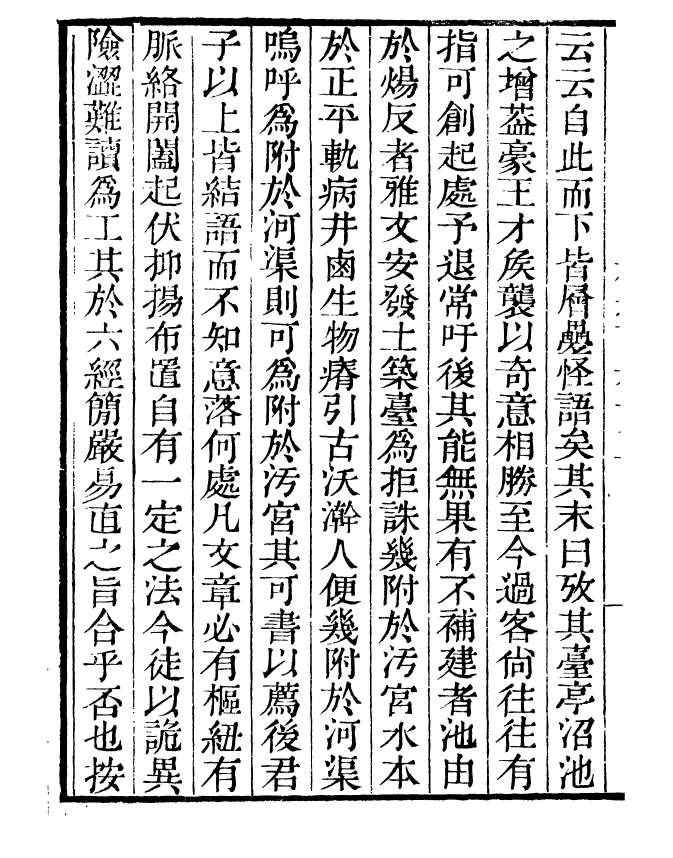 云云自此而下皆層疊怪語矣其末曰攷其臺亭沼池
之增葢豪王才矦襲以奇意相勝至今過客尙往往有
指可創起處予退常吁後其能無果有不補建者池由
於煬反者雅文安發土築臺爲拒誅幾附於汚宮水本
於正平軌病井鹵生物瘠引古沃澣人便幾附於河渠
嗚呼爲附於河渠則可爲附於汚宮其可書以薦後君
子以上皆結語而不知意落何處凡文章必有樞紐有
脈絡開闔起伏抑揚布置自有一定之法今徒以詭異
險澀難讀爲工其於六經簡嚴易直之旨合乎否也按